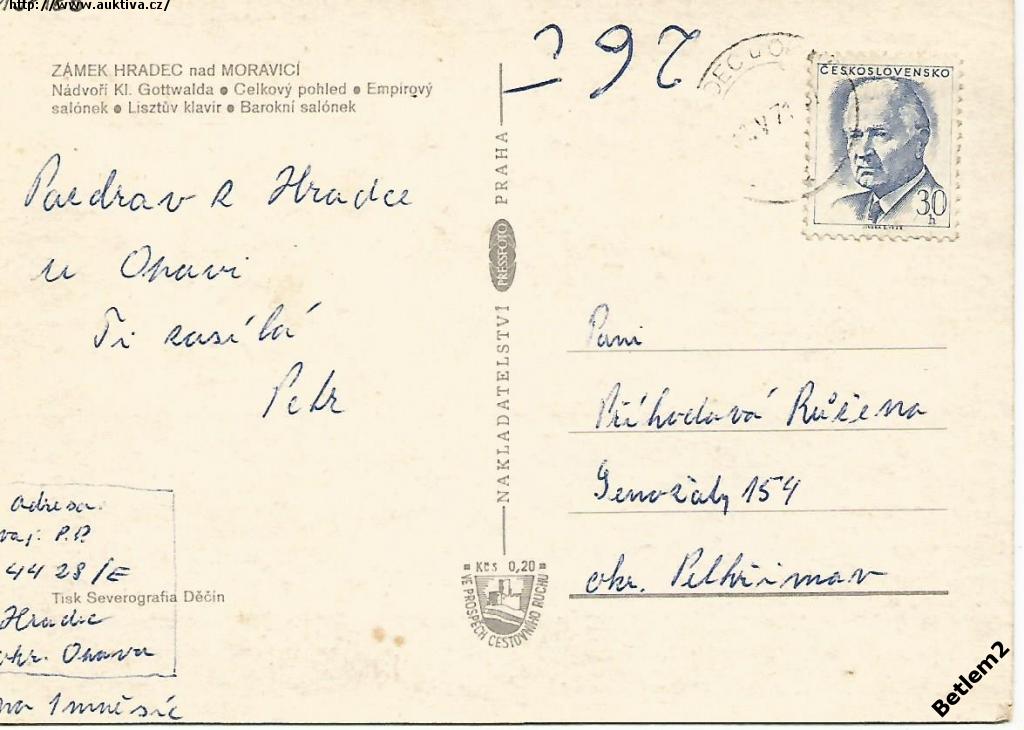 http://www.auktiva.cz/
ZÁMEK HRADEC nad MORAVICÍ
Nádvoří Kl. Gottwalda ● Celkový pohled ● Empírový
salónek ● Lisztův klavír ● Barokní salónek
Pozdrav z Hradce
u Opavi
Ti zasílá
Petr
adresa:
voj. P.P.
4428/E
Hradec
okr. Opava
na 1 mněsíc
Tisk Severografia Děčín
NAKLADATELSTVÍ PRESSFOTO PRAHA
Kčs 0,20
VE PROSPĚCH CESTOVNÍHO RUCHU
ČESKOSLOVENSKO
30
h
Paní
Příhodová Růžena
Senožaty 154
okr. Pelhřimov
Betlem2